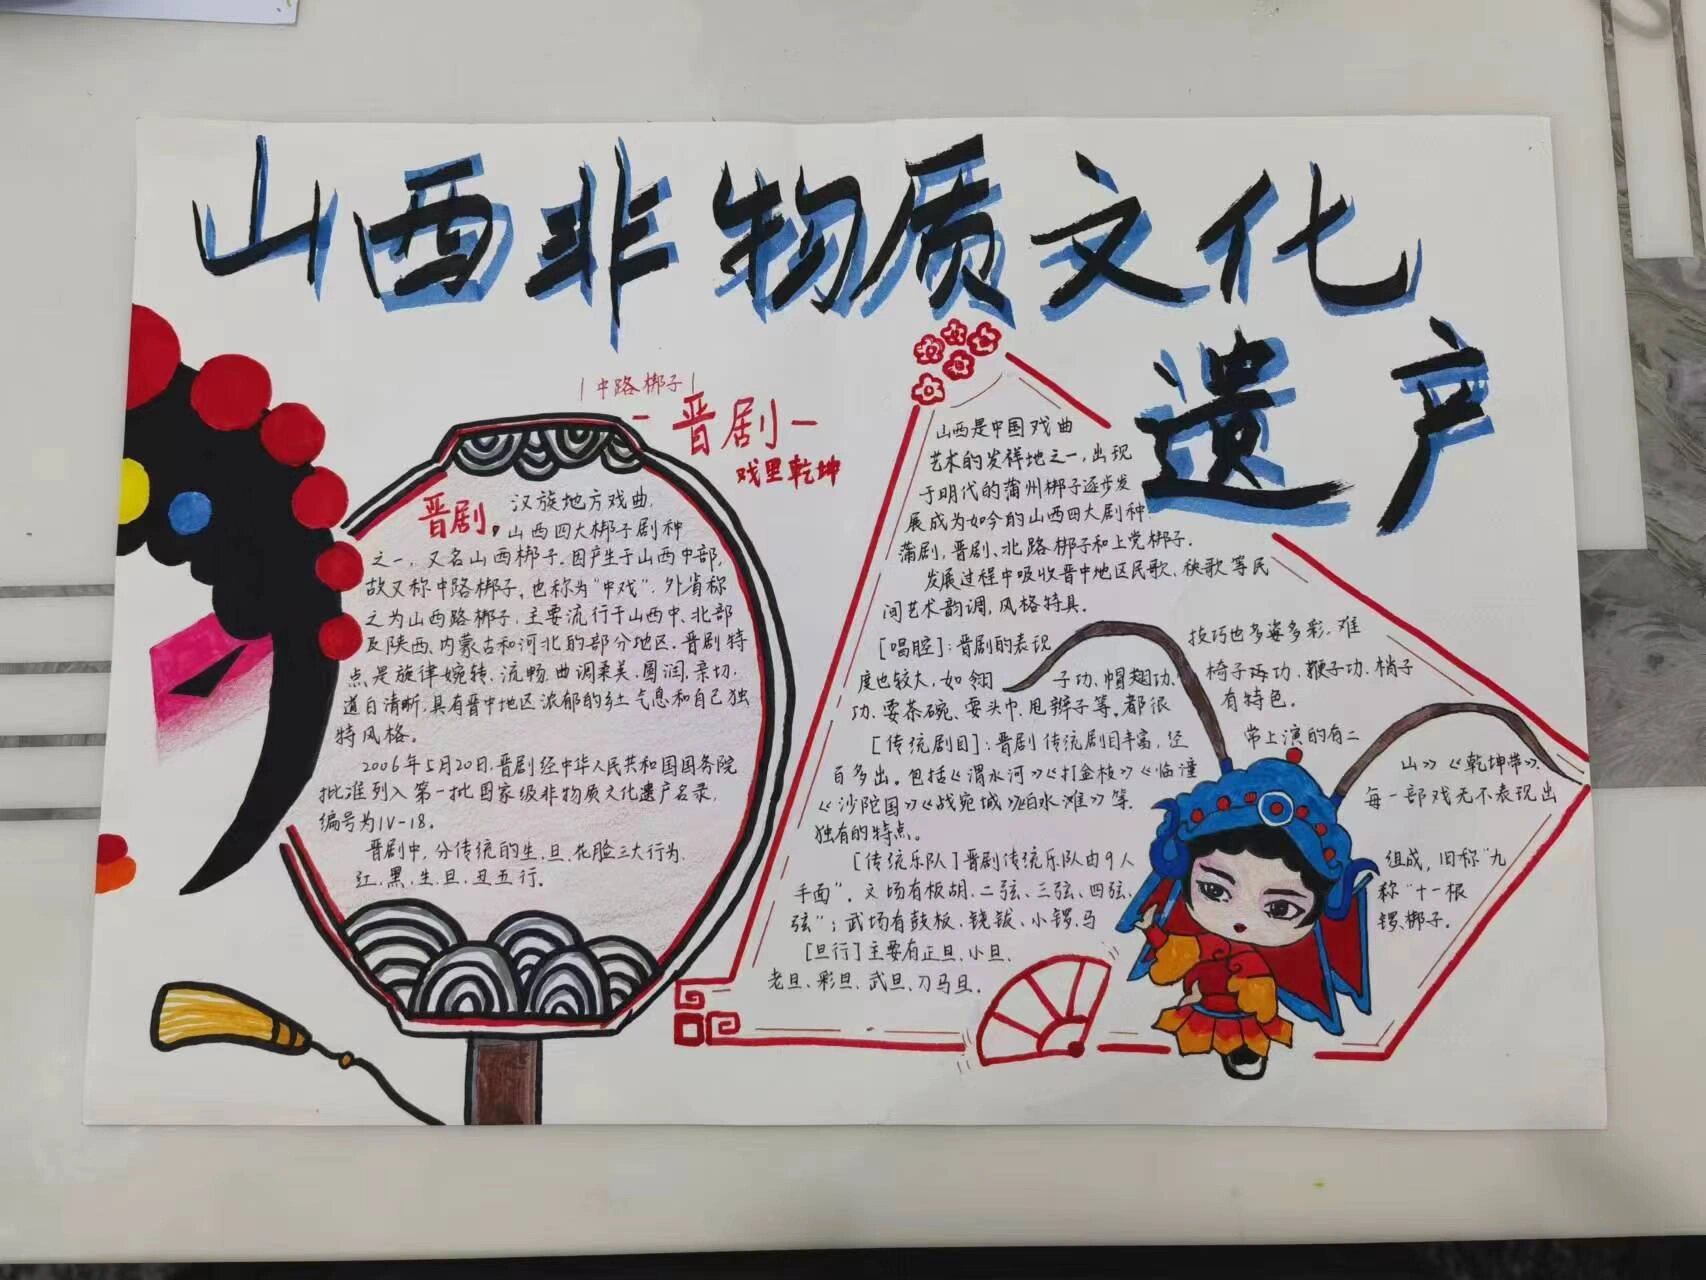 山西非物质文化
遗产
中路梆子
晋剧
戏里乾坤
晋剧,汉族地方戏曲,
山西四大梆子剧种
之一,又名山西梆子.因产生于山西中部,
故又称中路梆子,也称为“中戏”.外省称
之为山西路梆子,主要流行于山西中、北部
及陕西、内蒙古和河北的部分地区.晋剧特
点是旋律婉转、流畅,曲调柔美、圆润、亲切,
道白清晰,具有晋中地区浓郁的乡土气息和自己独
特风格。
2006年5月20日,晋剧经中华人民共和国国务院
批准列入第一批国家级非物质文化遗产名录,
编号为IV-18。
晋剧中,分传统的生、旦、花脸三大行为,
红、黑、生、旦、丑五行。
山西是中国戏曲
艺术的发祥地之一,出现
于明代的蒲州梆子逐步发
展成为如今的山西四大剧种:
蒲剧,晋剧、北路梆子和上党梆子.
发展过程中吸收晋中地区民歌、秧歌等民
间艺术韵调,风格特具.
[唱腔]:晋剧的表现 技巧也多姿多彩,难
度也较大,如翎 子功、帽翅功、椅子功、鞭子功、梢子
功、耍茶碗、耍头巾、甩辫子等.都很 有特色。
[传统剧目]:晋剧传统剧目丰富,经 常上演的有二
百多出。包括《渭水河》《打金枝》《临潼 山》《乾坤带》、
《沙陀国》《战宛城》《白水滩》等. 每一部戏无不表现出
独有的特点。
[传统乐队]晋剧传统乐队由9人 组成,旧称“九
手面”。文场有板胡、二弦、三弦、四弦、 称“十一根
弦”;武场有鼓板、铙钹、小锣、马 锣、梆子.
[旦行]主要有正旦、小旦、
老旦、彩旦、武旦、刀马旦.